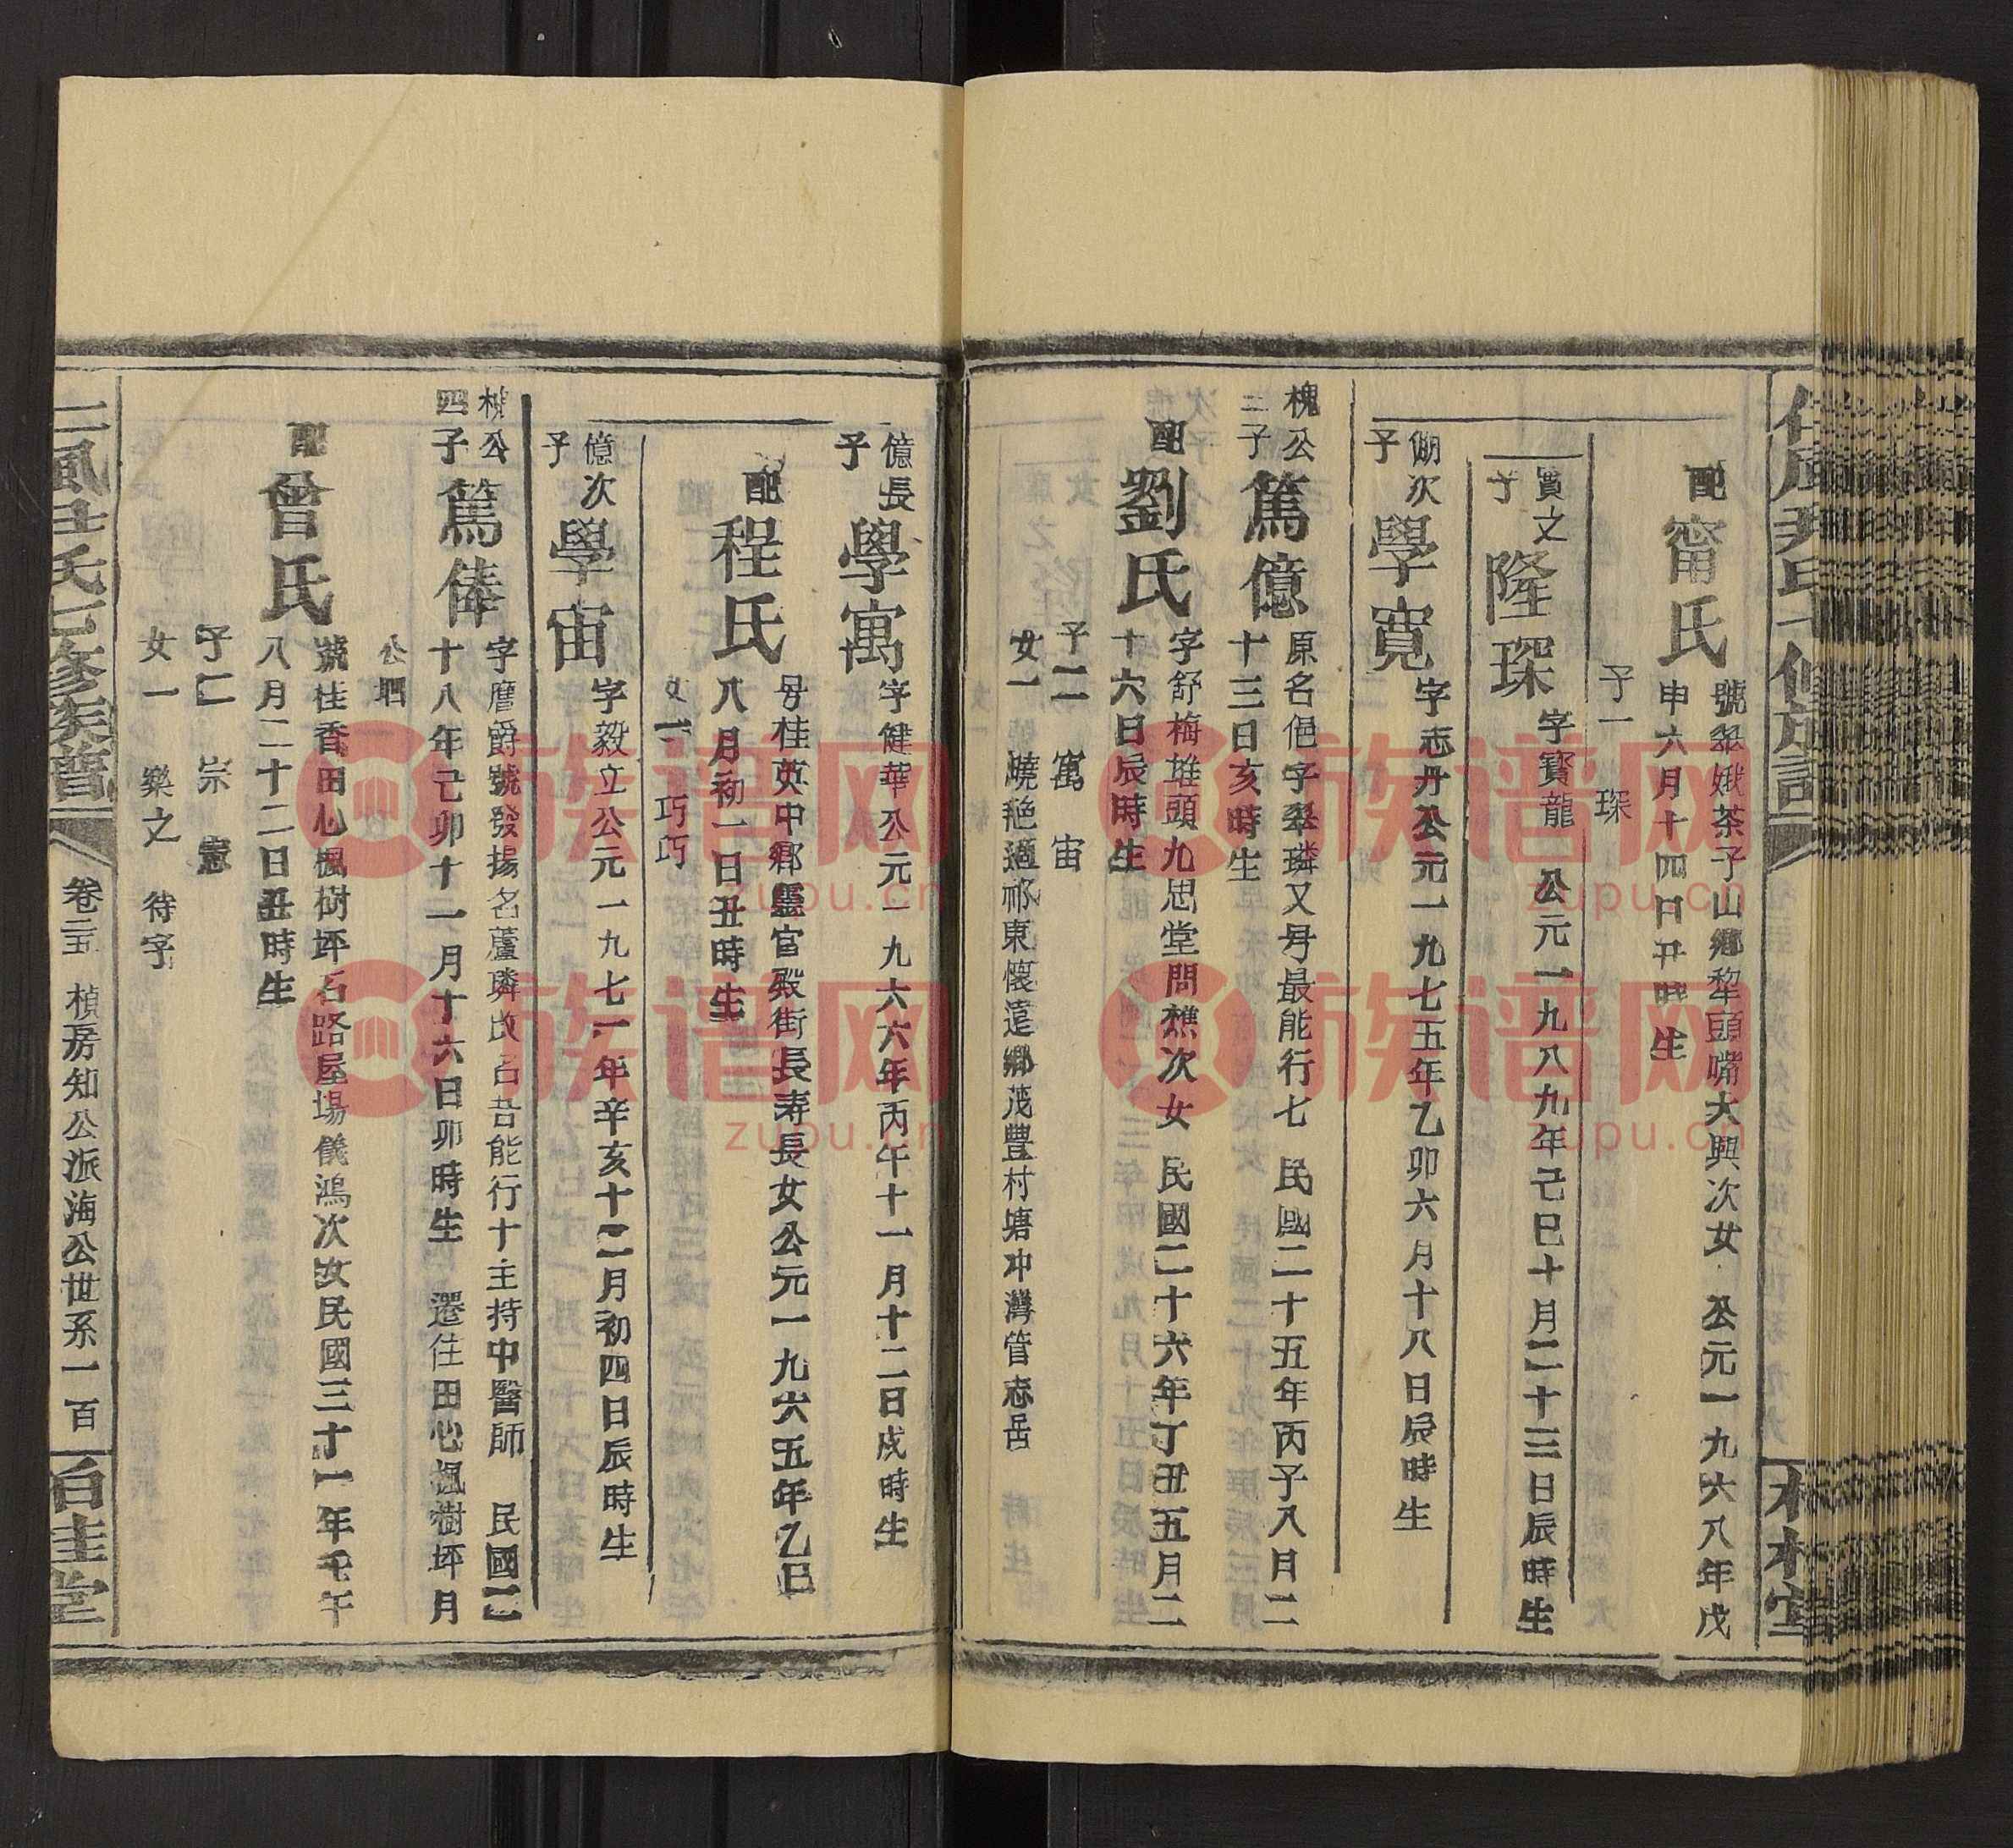 配
甯氏
號翠娥茶子山鄉犂頭嘴大興次女 公元一九六八年戊
申六月十四日丑時生
子一 琛
實之
子
隆琛
字寶龍 公元一九八九年己巳十月二十三日辰時生
次
子
學寬
字志丹公元一九七五年乙卯六月十八日辰時生
槐公
二子
篤億
原名俋字翠璘又号最能行七 民國二十五年丙子八月二
十三日亥時生
配
劉氏
字舒梅堆頭九思堂問樵次女 民國二十六年丁丑五月二
十六日辰時生
子二 寓 宙
女一 曉艳適祁東懷遠鄉茂豐村塘冲灣管志岳
億長
子
學寓
字健華公元一九六六年丙午十一月十二日戌時生
配
程氏
号桂英中鄉靈官殿街長壽長女公元一九六五年乙巳
八月初一日丑時生
女一 巧巧
億次
子
學宙
字毅立公元一九七一年辛亥十二月初四日辰時生
楨公
四子
篤俸
字膺爵號發揚名蘆璘改名吾能行十主持中醫師 民國二
十八年己卯十一月十六日卯時生 遷住田心楓樹坪月
公垇
配
曾氏
號桂香田心楓樹坪石路屋場儀鴻次女民國三十一年壬午
八月二十二日丑時生
子二 宗 憲
女一 樂之 待字
氏七修族譜
卷二五 楨房知公派海公世系一百
百桂堂
族谱网
zupu.cn
族谱网
zupu.cn
族谱网
zupu.cn
族谱网
zupu.cn